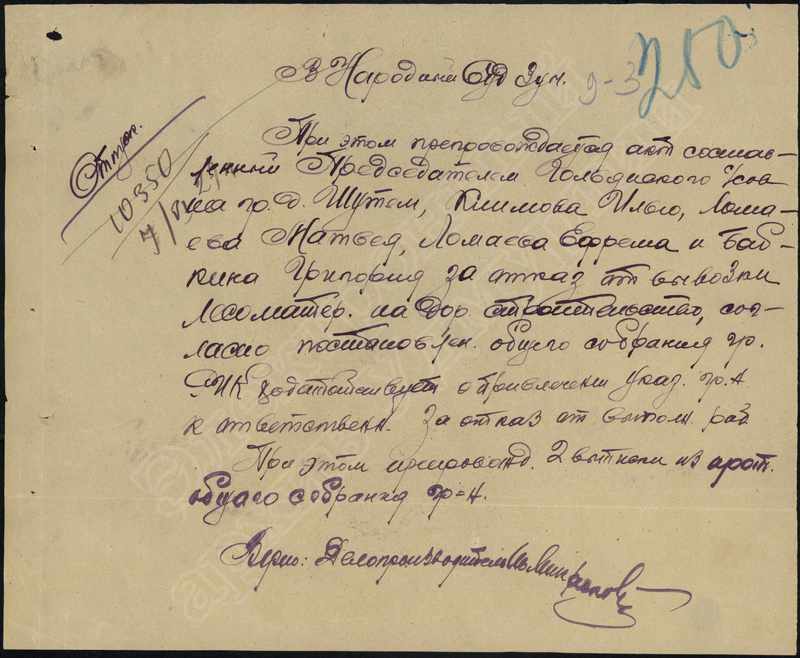 250
В Народный Суд 3 уч.
9-3
Отпр.
10350
При этом препровождается акт состав-
ленный Председателем Голодаского с/сов
гр. д. Шутем, Климова Илью, Лома-
ева Матвея, Ломаева Ефрема и Баб-
кина Григория за отказ от вывозки
лесоматер. на дор. строительство, сог-
ласно постановлен. общего собрания гр.
РИК ходатайствует о привлечении указ. гр-н
к ответственн. за отказ от выполн. раб.
При этом препровожд. 2 выписки из прот.
общего собрания гр-н.
Верно: Делопроизводитель